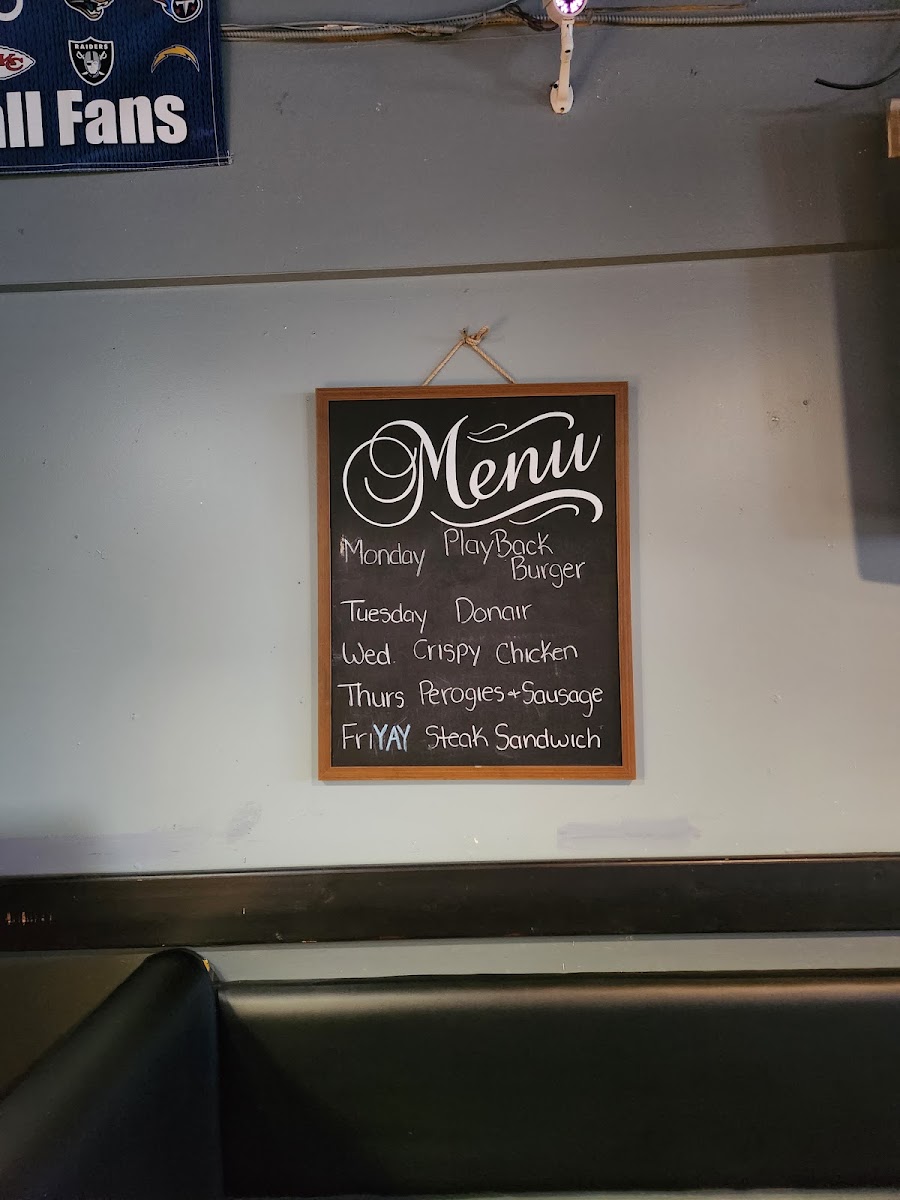 RAIDERS
KC
ll Fans
Menu
Monday PlayBack
Burger
Tuesday Donair
Wed. Crispy Chicken
Thurs Perogies + Sausage
FriYAY Steak Sandwich